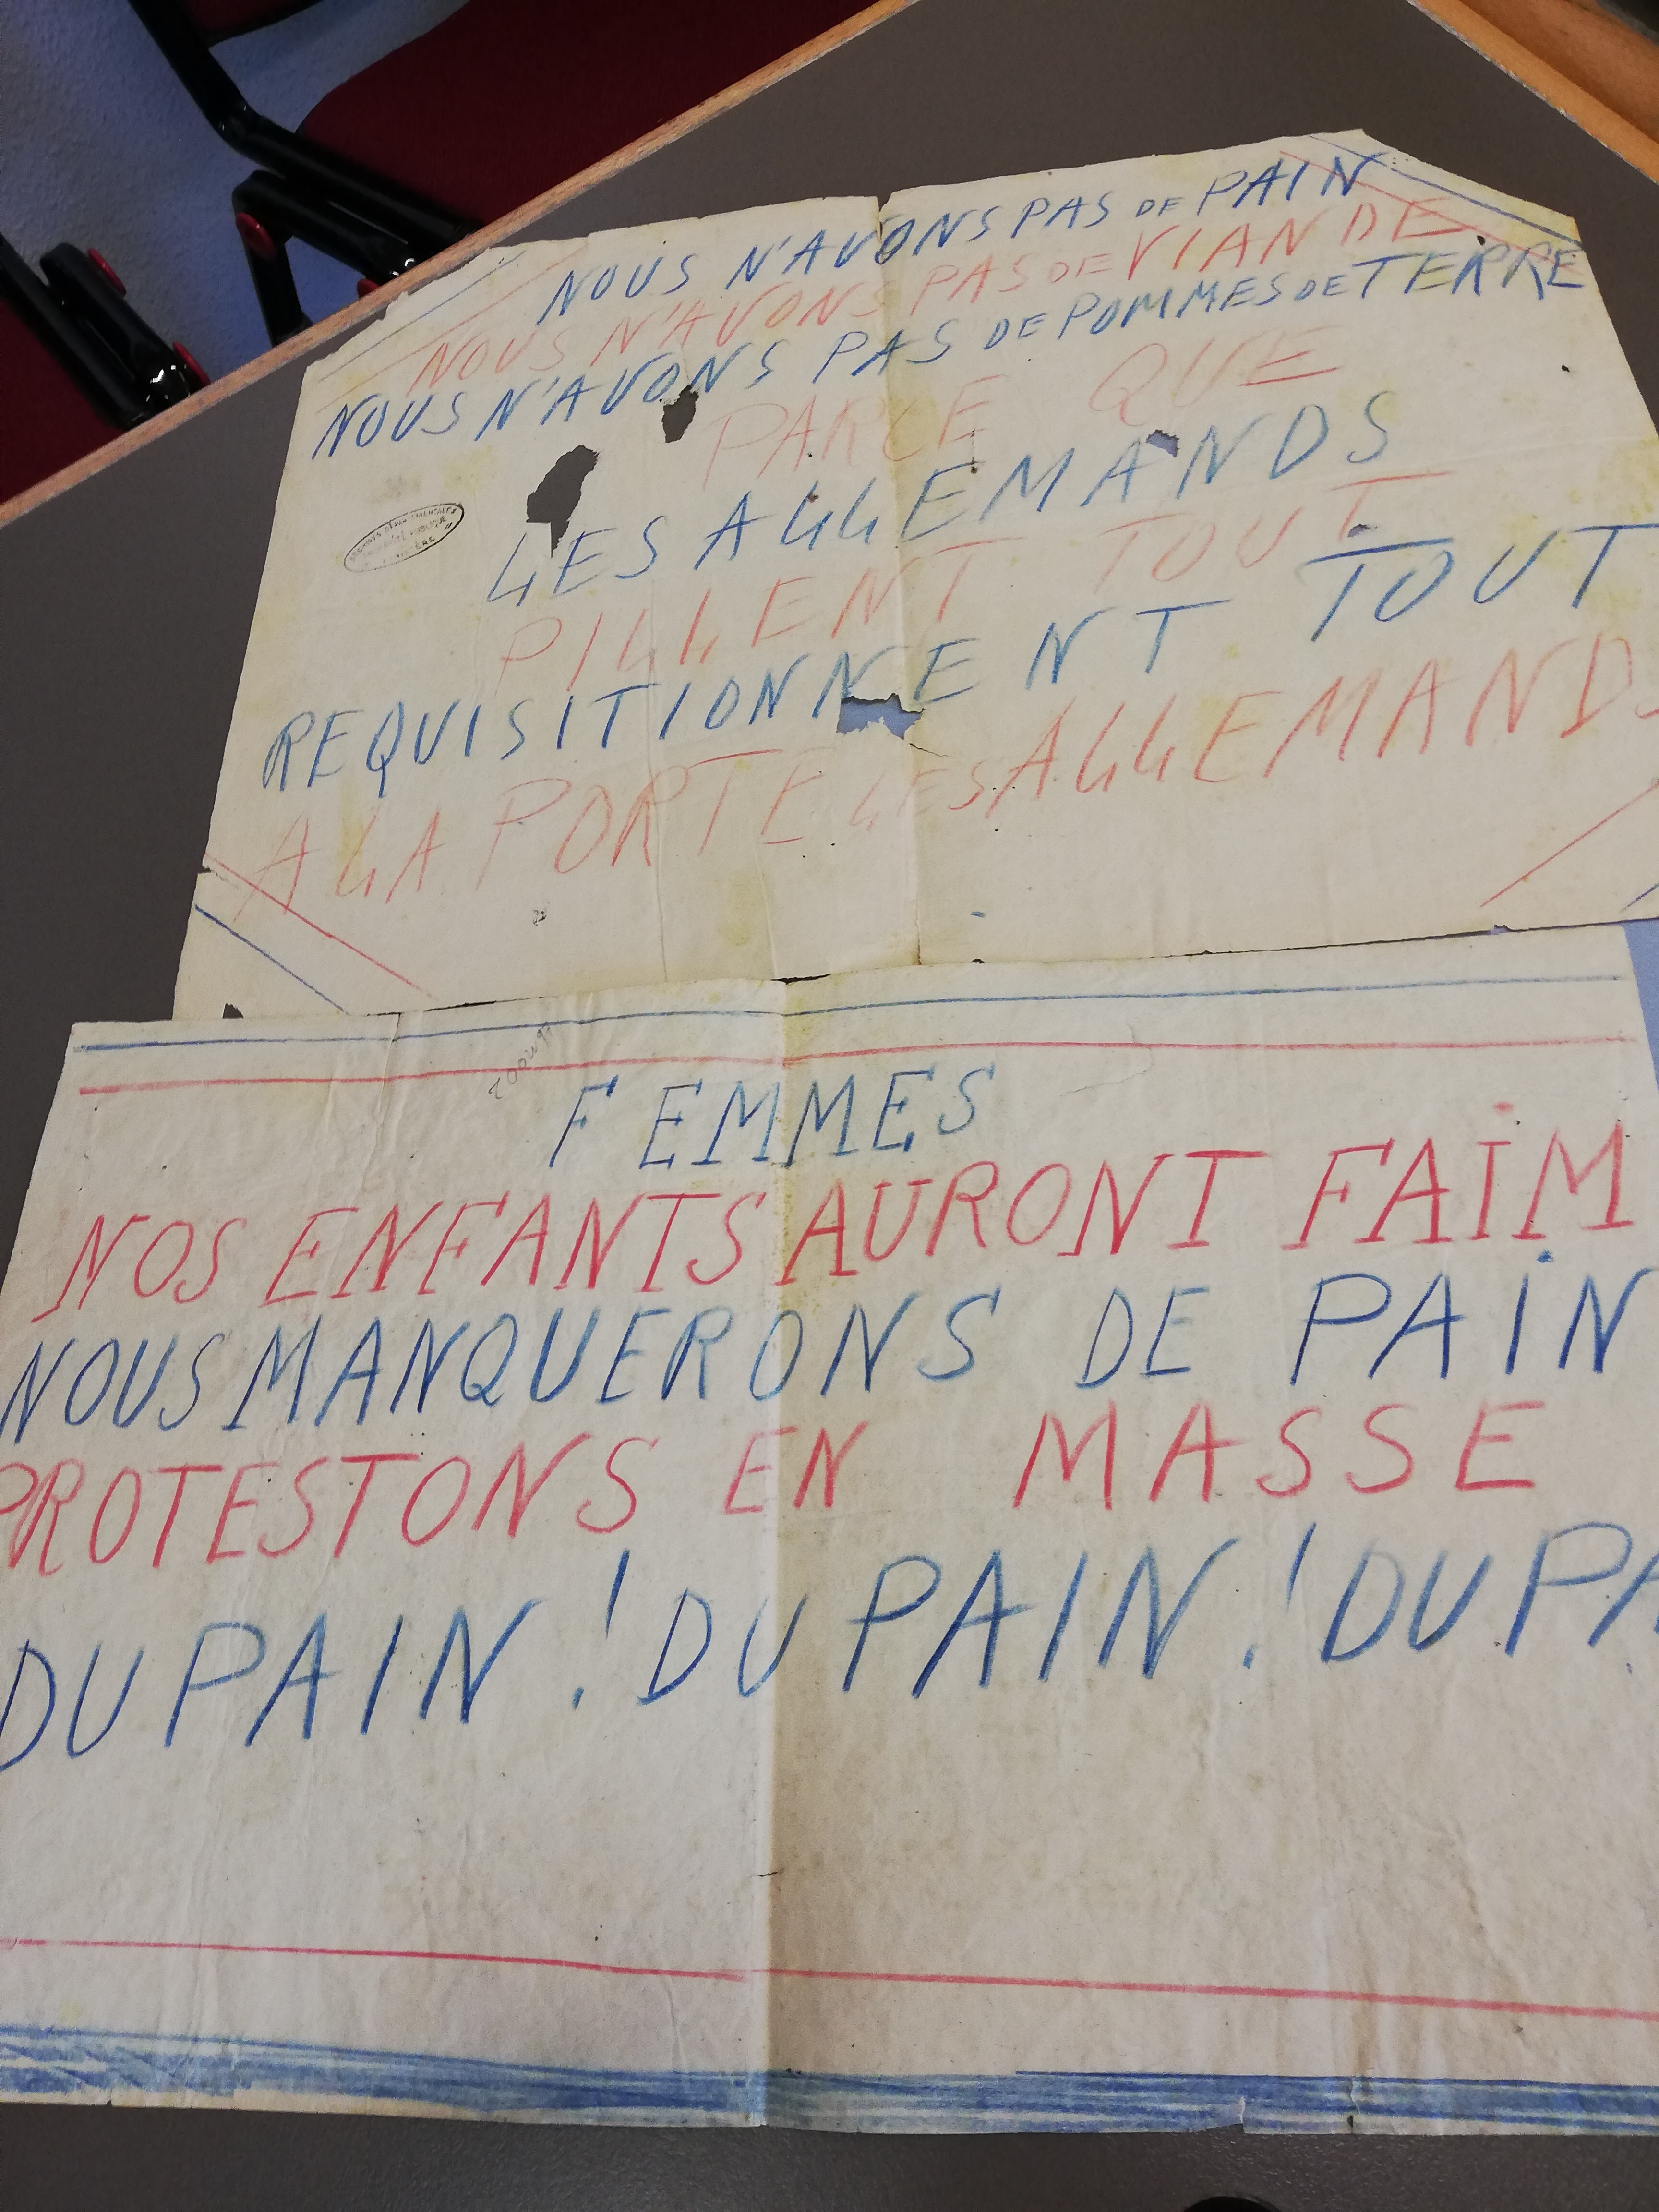 NOUS N'AVONS PAS DE PAIN
NOUS N'AVONS PAS DE VIANDE
NOUS N'AVONS PAS DE POMMES DE TERRE
PARCE QUE
LES ALLEMANDS
PILLENT TOUT
REQUISITIONNENT TOUT
A LA PORTE LES ALLEMANDS
FEMMES
NOS ENFANTS AURONT FAIM
NOUS MANQUERONS DE PAIN
PROTESTONS EN MASSE
DU PAIN! DU PAIN! DU PA